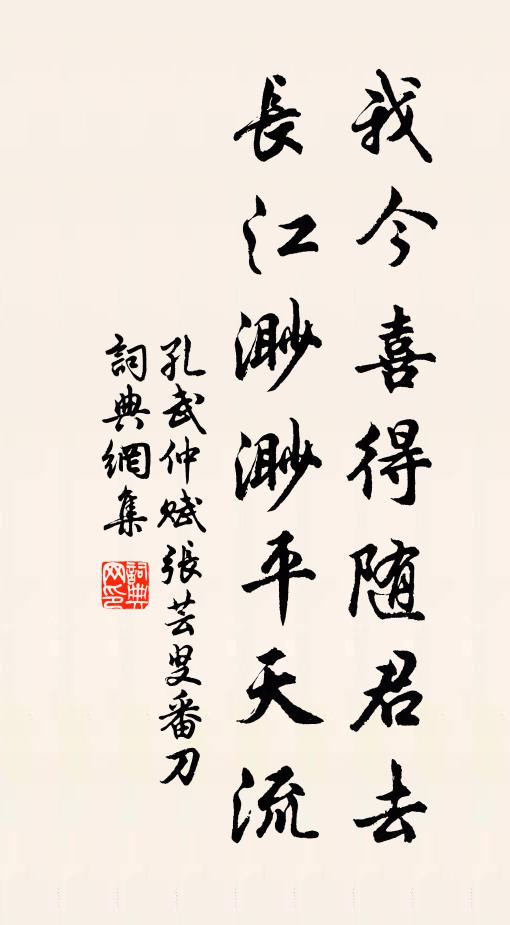 我今喜得随君去
長江渺渺平天流
孔武仲赋張芸叟番刀
詞典網集
詞典网印